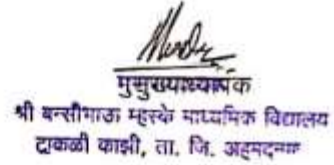 मुख्याध्यापक
श्री बन्सीभाऊ म्हस्के माध्यमिक विद्यालय
टाकळी काझी, ता. जि. अहमदनगर